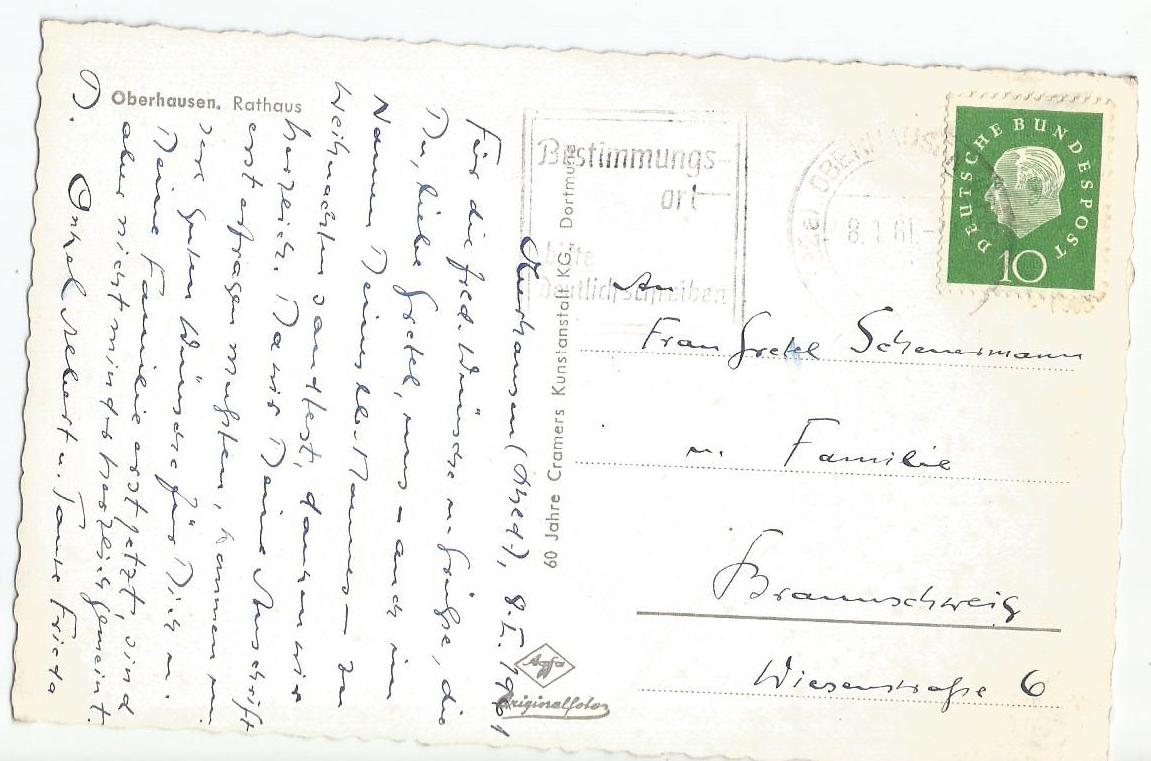 Oberhausen, Rathaus
Oberhausen (Rhld.), 8. I. 1961
Für die frdl. Wünsche u. Grüße, die
Du, liebe Gretel, uns – auch im
Namen Deines lb. Mannes – zu
Weihnachten sandtest, danken wir
herzlich. Da wir Deine Anschrift
erst erfragen mußten, kommen un-
sere guten Wünsche für Dich u.
Deine Familie erst jetzt, sind
aber nicht minder herzlich gemeint.
D. Onkel Albert u. Tante Frieda
60 Jahre Cramers Kunstanstalt KG, Dortmund
Agfa
Originalfoto
Bestimmungs-
ort
bitte
deutlich schreiben
OBERHAUSEN
8.1.61.-
DEUTSCHE BUNDESPOST
10
An
Frau Gretel Scheuermann
u. Familie
Braunschweig
Wiesenstraße 6